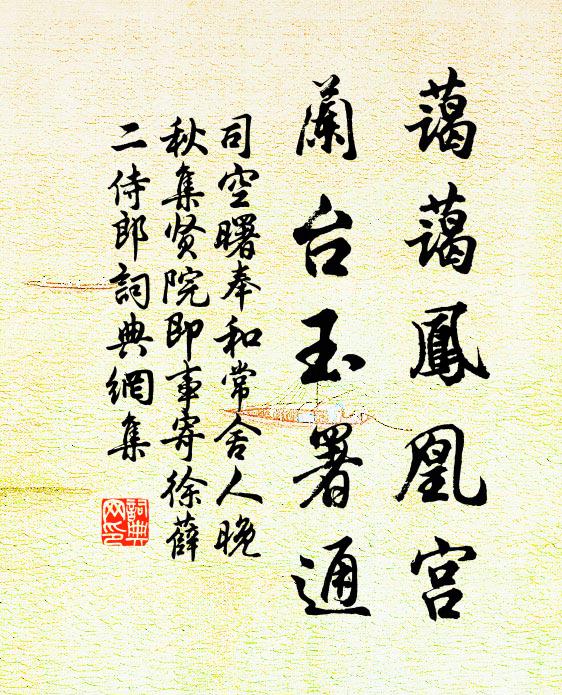 藹藹鳳凰宮
蘭台玉署通
司空曙奉和常舍人晚
秋集贤院即事寄徐薛
二侍郎詞典網集
詞典
网印